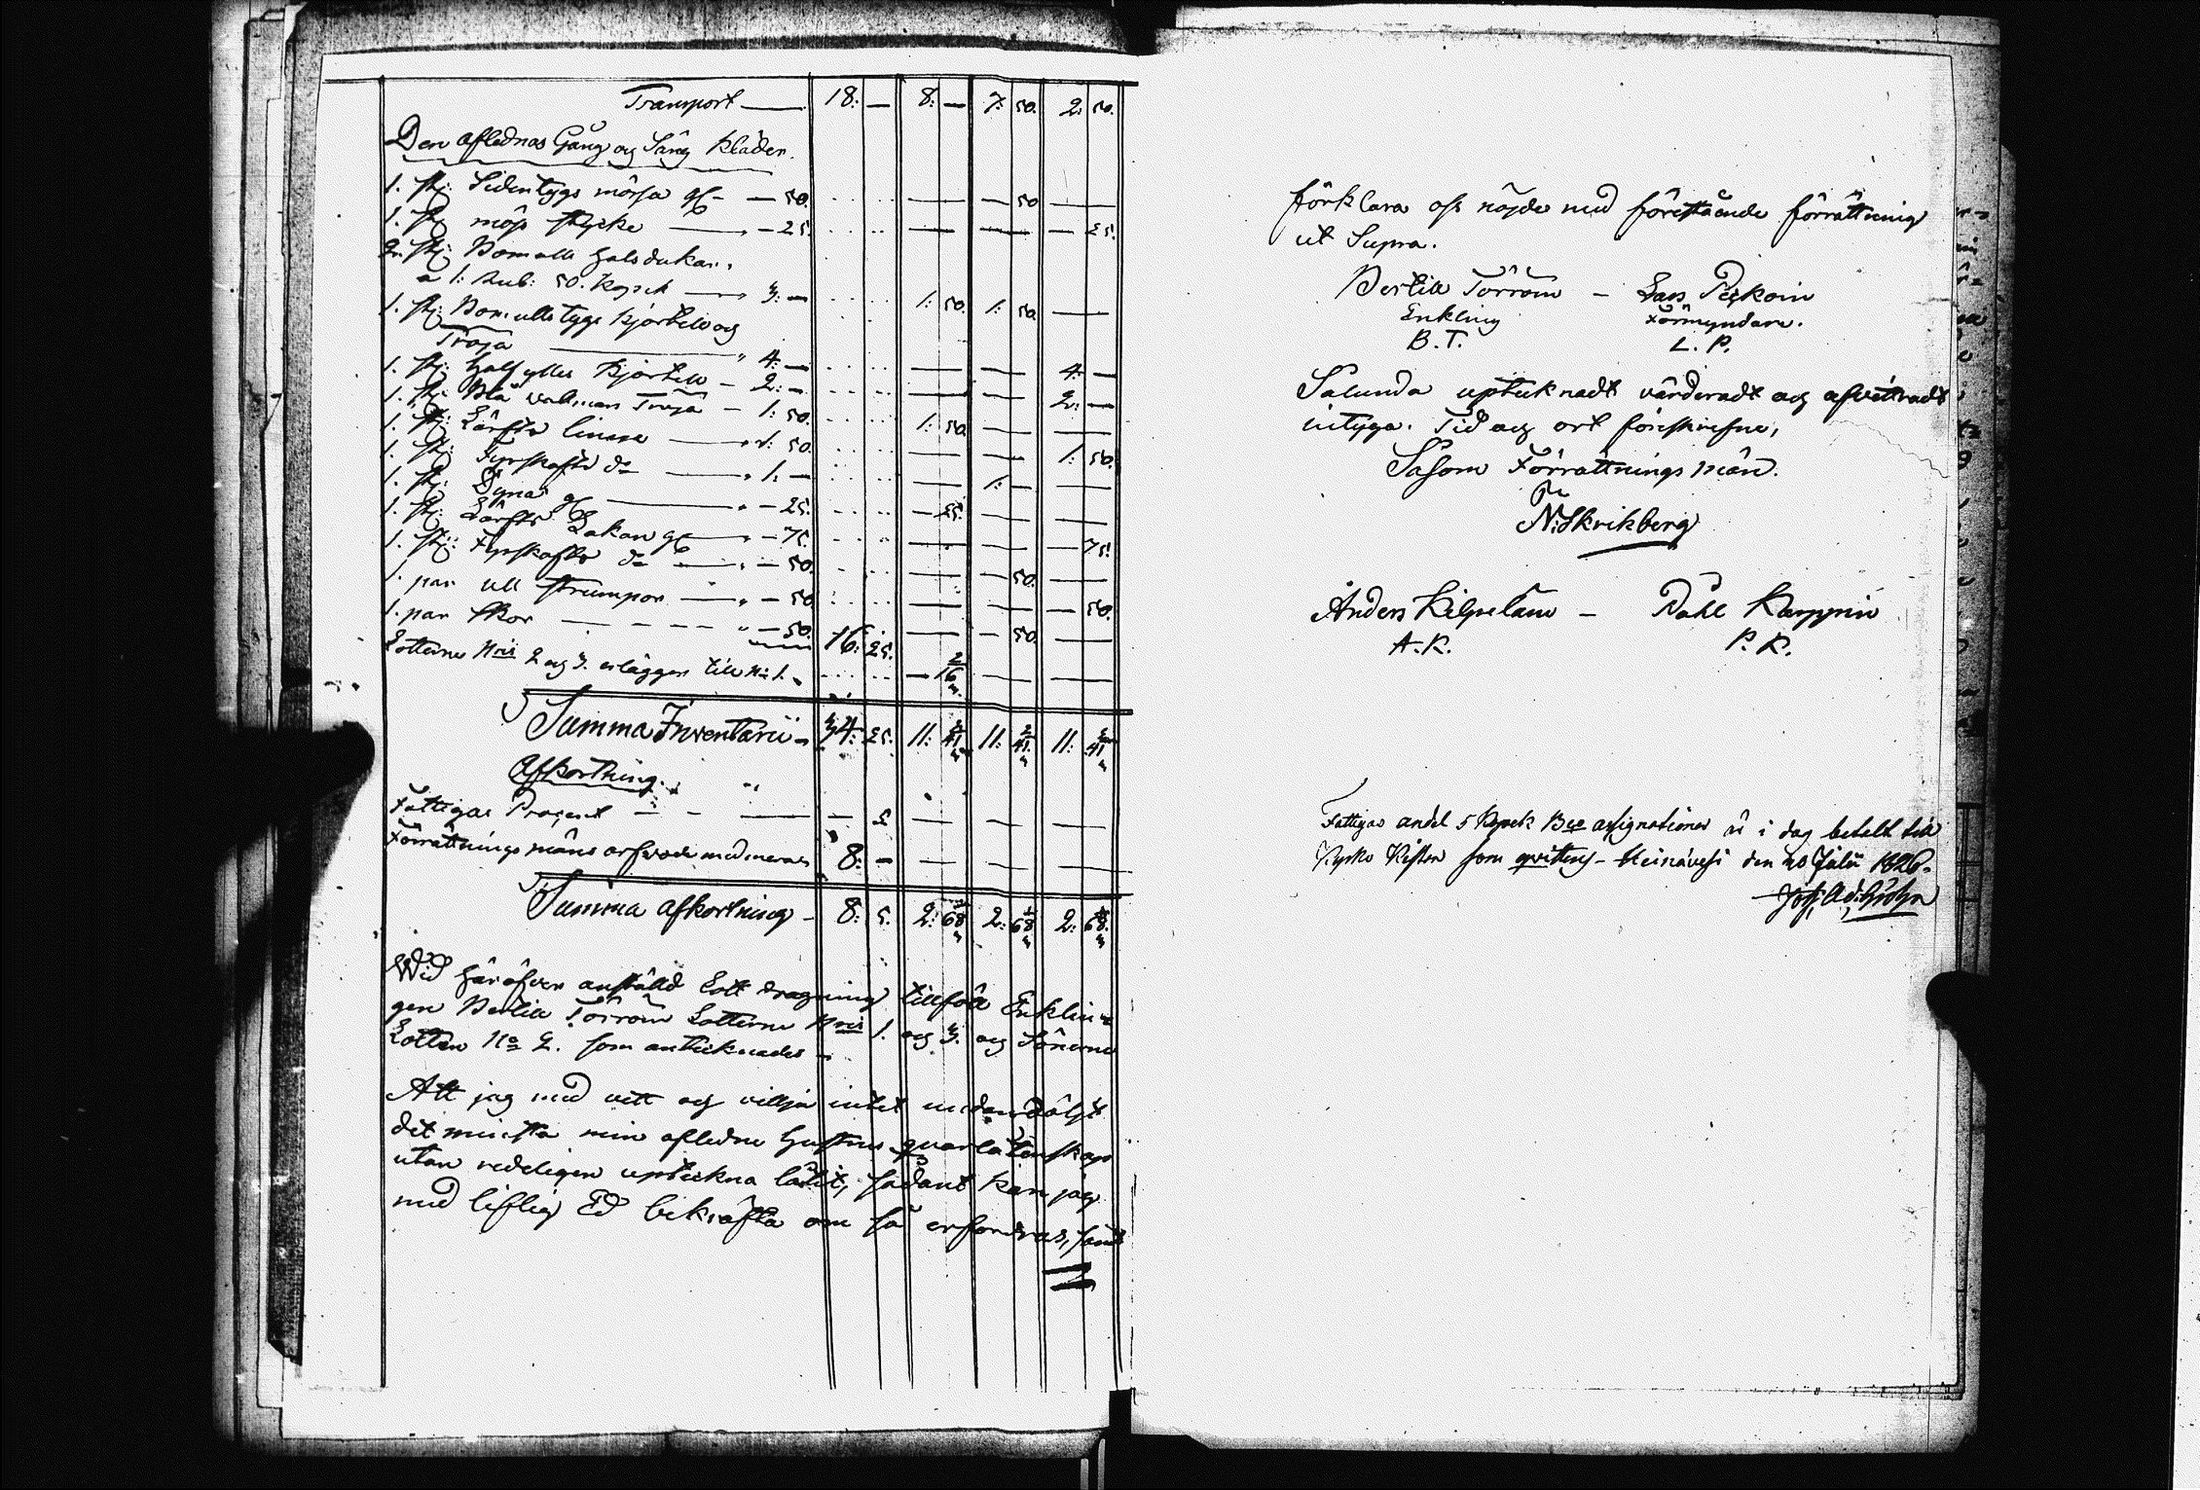 Transport — 18: — 8: — 7: 50. 2: 50.
Den aflednas Gång og Säng kläder.
1. st: Sidentygs mössa — 50. — — 50 —
1. st: möss stycke — 25. — — — 25.
2. st: Bomulls halsdukar,
a 1: Rub: 50. Kopek — 3: — 1: 50. 1: 50. —
1. st: Bomulls tygs kjortell og
Tröja — 4: — — — 4: —
1. st: Half ylles kjortell — 2: — — — 2: —
1. st: Blå valmars Tröja — 1: 50. 1: 50. — —
1. st: Lärfts linne — 1: 50. — — 1: 50.
1. st: Fyrskafts do — 1: — — 1: — —
1. st: Dyna — 25. — 25. — —
1. st: Lärfts Lakan — 75. — — — 75.
1. st: Fyrskafts do — 50. — — 50. —
1. par ull strumpor — 50. — — — 50.
1. par skor — 50. 16: 25. — — 50. —
Lotterne Nris 2 og 3. erlägger till No 1. — 16 2/3. — —
Summa Inventarii — 34: 25. 11: 41 2/3 11: 41 2/3 11: 41 2/3
Afkortning.
Fattigas Procent — 5 — — —
Förrättnings mäns arfvode med meras 8: — — — —
Summa afkortning — 8: 5. 2: 68 1/3 2: 68 1/3 2: 68 1/3
Wid häröfver anställd Lott dragning tillföll Enklin-
gen Bertill Törröin Lotterne Nris 1. og 3. og Sönerne
Lotten No 2. som antecknades —
Att jag med vett og vilja intet undandöljt
det minsta min afledne Hustrus qvarlåtenskap
utan redeligen upteckna låtit, sådant kan jag
med liflig Ed bekräfta om så erfordras, samt
förklara oss nöjde med förestående förrättning
ut Supra.
Bertill Törröin — Lars Peskoin
Enkling Förmyndare.
B. T. L. P.
Sålunda upteknadt värderadt og afvittradt
intyga. Tid og ort föreskrefne,
Såsom Förrättnings män.
N: Skrikberg
Anders Kilpeläin — Påhl Karppin
A. K. P. K.
Fattigas andel 5 Kopek Bco assignationer är i dag betalt till
Kyrko Kistan som qvitteras — Heinävesi den 20 Julii 1826.
Joh: Ad: